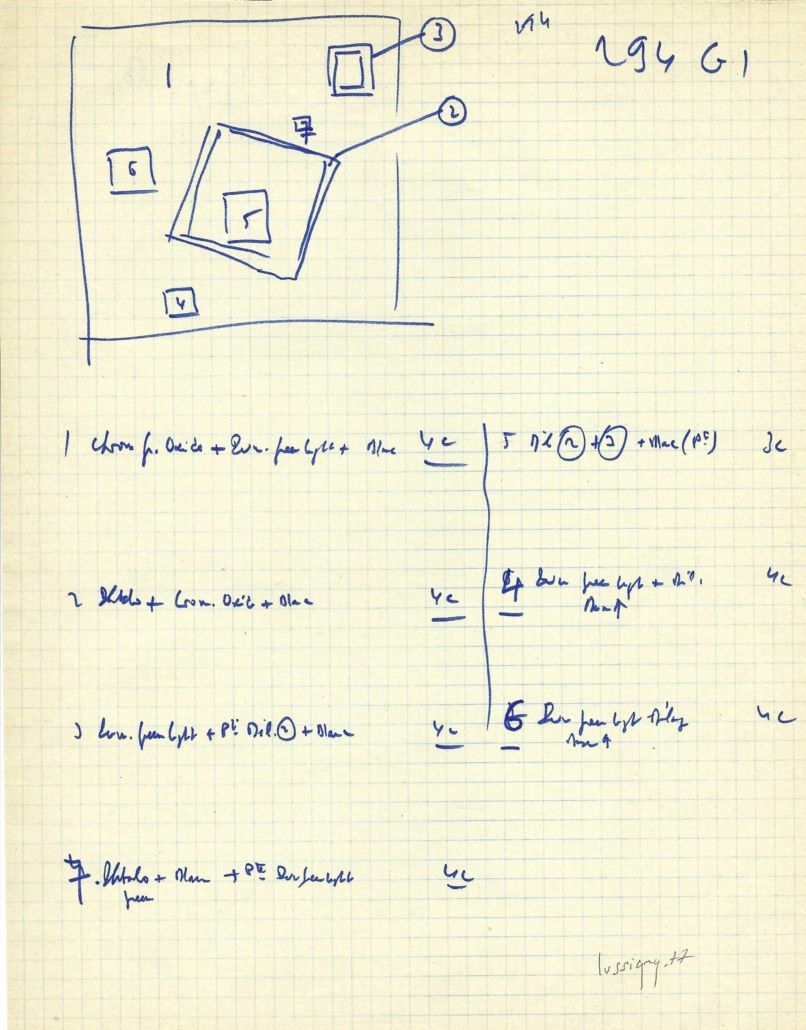 294 G1
3
1
2
7
6
5
4
1 Chrom. gr. Oxide + Perm. green light + Blanc 4c
5 Mél. 2 + 3 + Blanc (Pt) 3c
2 Phtalo + Crom. Oxid + Blanc 4c
4 Perm green light + 4c
3 Perm. green light + Pt Mél. 2 + Blanc 4c
6 Perm green light 4c
7. Phtalo + Blanc + Pt Perm green light 4c
green
lussigny.77